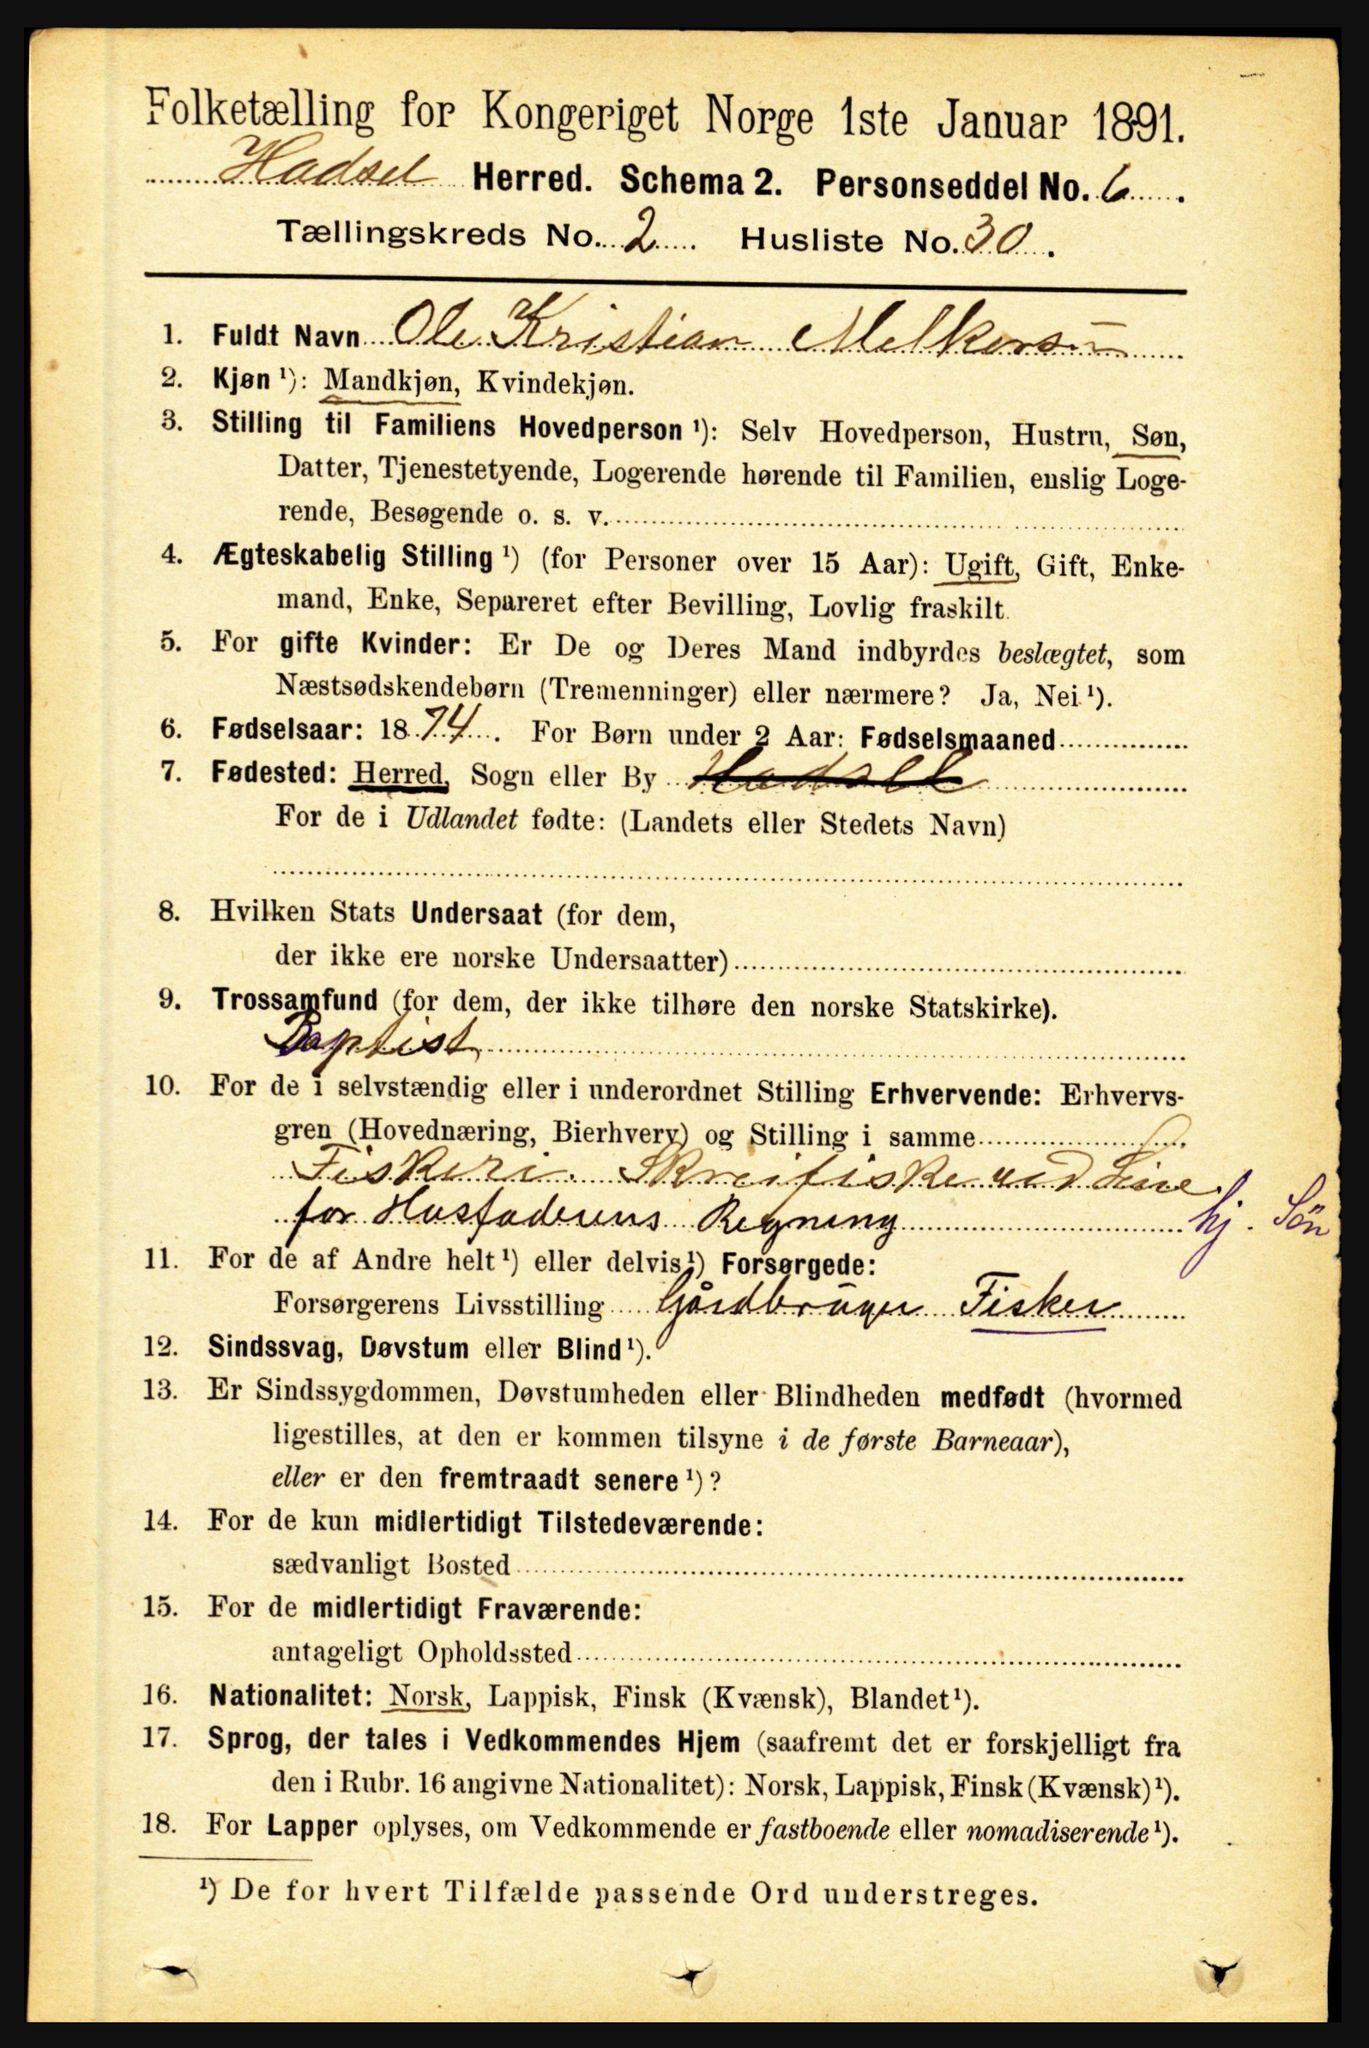 Folketælling for Kongeriget Norge 1ste Januar 1891.
Hadsel Herred. Schema 2. Personseddel No. 6.
Tællingskreds No. 2 Husliste No. 30.
1. Fuldt Navn Ole Kristian Melkersen
2. Kjøn ¹): Mandkjøn, Kvindekjøn.
3. Stilling til Familiens Hovedperson ¹): Selv Hovedperson, Hustru, Søn,
Datter, Tjenestetyende, Logerende hørende til Familien, enslig Loge-
rende, Besøgende o. s. v.
4. Ægteskabelig Stilling ¹) (for Personer over 15 Aar): Ugift, Gift, Enke-
mand, Enke, Separeret efter Bevilling, Lovlig fraskilt.
5. For gifte Kvinder: Er De og Deres Mand indbyrdes beslægtet, som
Næstsødskendebørn (Tremenninger) eller nærmere? Ja, Nei ¹).
6. Fødselsaar: 1874. For Børn under 2 Aar: Fødselsmaaned
7. Fødested: Herred, Sogn eller By Hadsel
For de i Udlandet fødte: (Landets eller Stedets Navn)
8. Hvilken Stats Undersaat (for dem,
der ikke ere norske Undersaatter)
9. Trossamfund (for dem, der ikke tilhøre den norske Statskirke).
Baptist
10. For de i selvstændig eller i underordnet Stilling Erhvervende: Erhvervs-
gren (Hovednæring, Bierhverv) og Stilling i samme
Fiskeri. Skreifiske ved Line
for Husfaderens Regning hj. Søn
11. For de af Andre helt ¹) eller delvis ¹) Forsørgede:
Forsørgerens Livsstilling Gårdbruger Fisker
12. Sindssvag, Døvstum eller Blind ¹).
13. Er Sindssygdommen, Døvstumheden eller Blindheden medfødt (hvormed
ligestilles, at den er kommen tilsyne i de første Barneaar),
eller er den fremtraadt senere ¹)?
14. For de kun midlertidigt Tilstedeværende:
sædvanligt Bosted
15. For de midlertidigt Fraværende:
antageligt Opholdssted
16. Nationalitet: Norsk, Lappisk, Finsk (Kvænsk), Blandet ¹).
17. Sprog, der tales i Vedkommendes Hjem (saafremt det er forskjelligt fra
den i Rubr. 16 angivne Nationalitet): Norsk, Lappisk, Finsk (Kvænsk) ¹).
18. For Lapper oplyses, om Vedkommende er fastboende eller nomadiserende ¹).
¹) De for hvert Tilfælde passende Ord understreges.